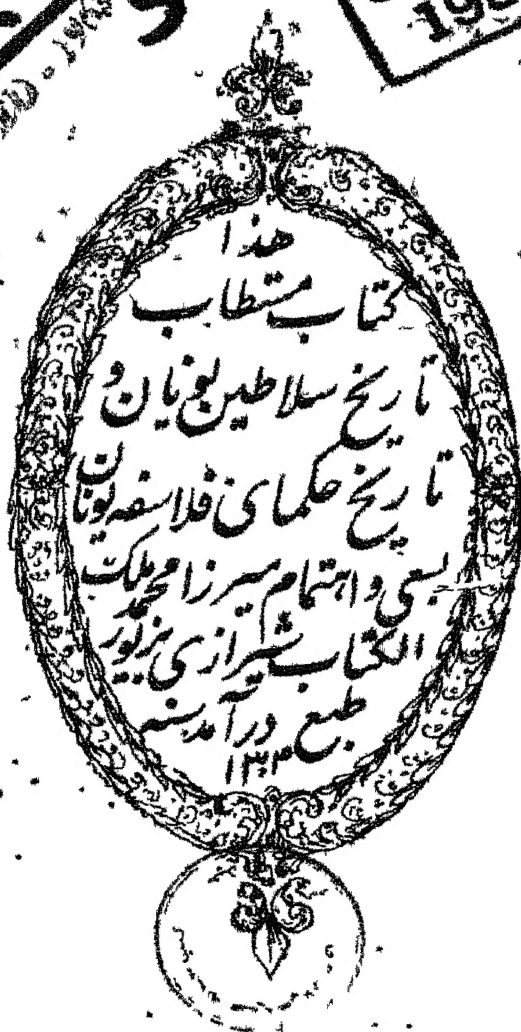 هذا
کتاب مستطاب
تاریخ سلاطین یونان و
تاریخ حکمای فلاسفه یونان
بسعی و اهتمام میرزا محمد ملک
الکتاب شیرازی بزیور
طبع در آمد سنه